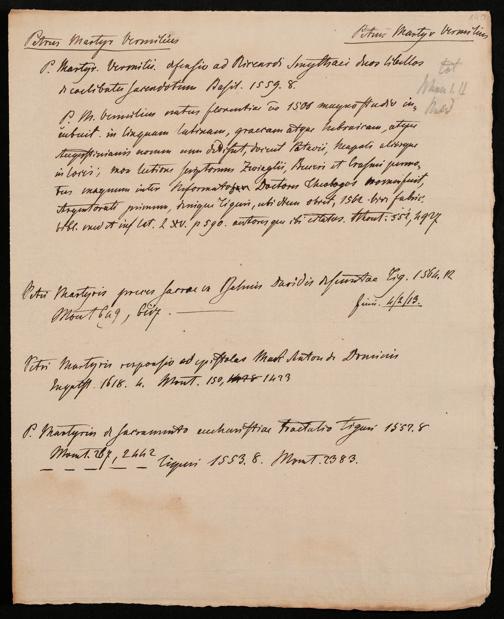 Petrus Martyr Vermilius Petrus Martyr Vermilius
P. Martyr. Vermilii defensio ad Riccardi Smythaei duos libellos
de caelibatu sacerdotum Basil. 1559. 8.
P. M. Vermilius natus Florentiae 1500 magno studio in-
cubuit in linguam latinam, graecam atque hebraicam, atque
Augustinianis nomen cum dedisset, docuit Patavii, Neapoli aliisque
in locis; mox lectione scriptorum Zwinglii, Buceri et Erasmi permo-
tus magnum inter Reformatos Doctores Theologos nomen,
Argentorati primum, denique Tiguri, ubi idem obiit, 1562.
p 590. autoresque ibi citatos. Mont. 551, 4927
Petri Martyris preces sacrae ex Psalmis Davidis desumtae Tig. 1564. 12
Mont 649, 4/2/13.
Petri Martyris responsio ad epistolas Marc Anton de Dominis
1618. 4. Mont. 150, 1423
P. Martyris de Sacramento eucharistiae tractatio Tiguri 1557. 8
Mont. 267, 2442
Tiguri 1553. 8. Mont. 2383.